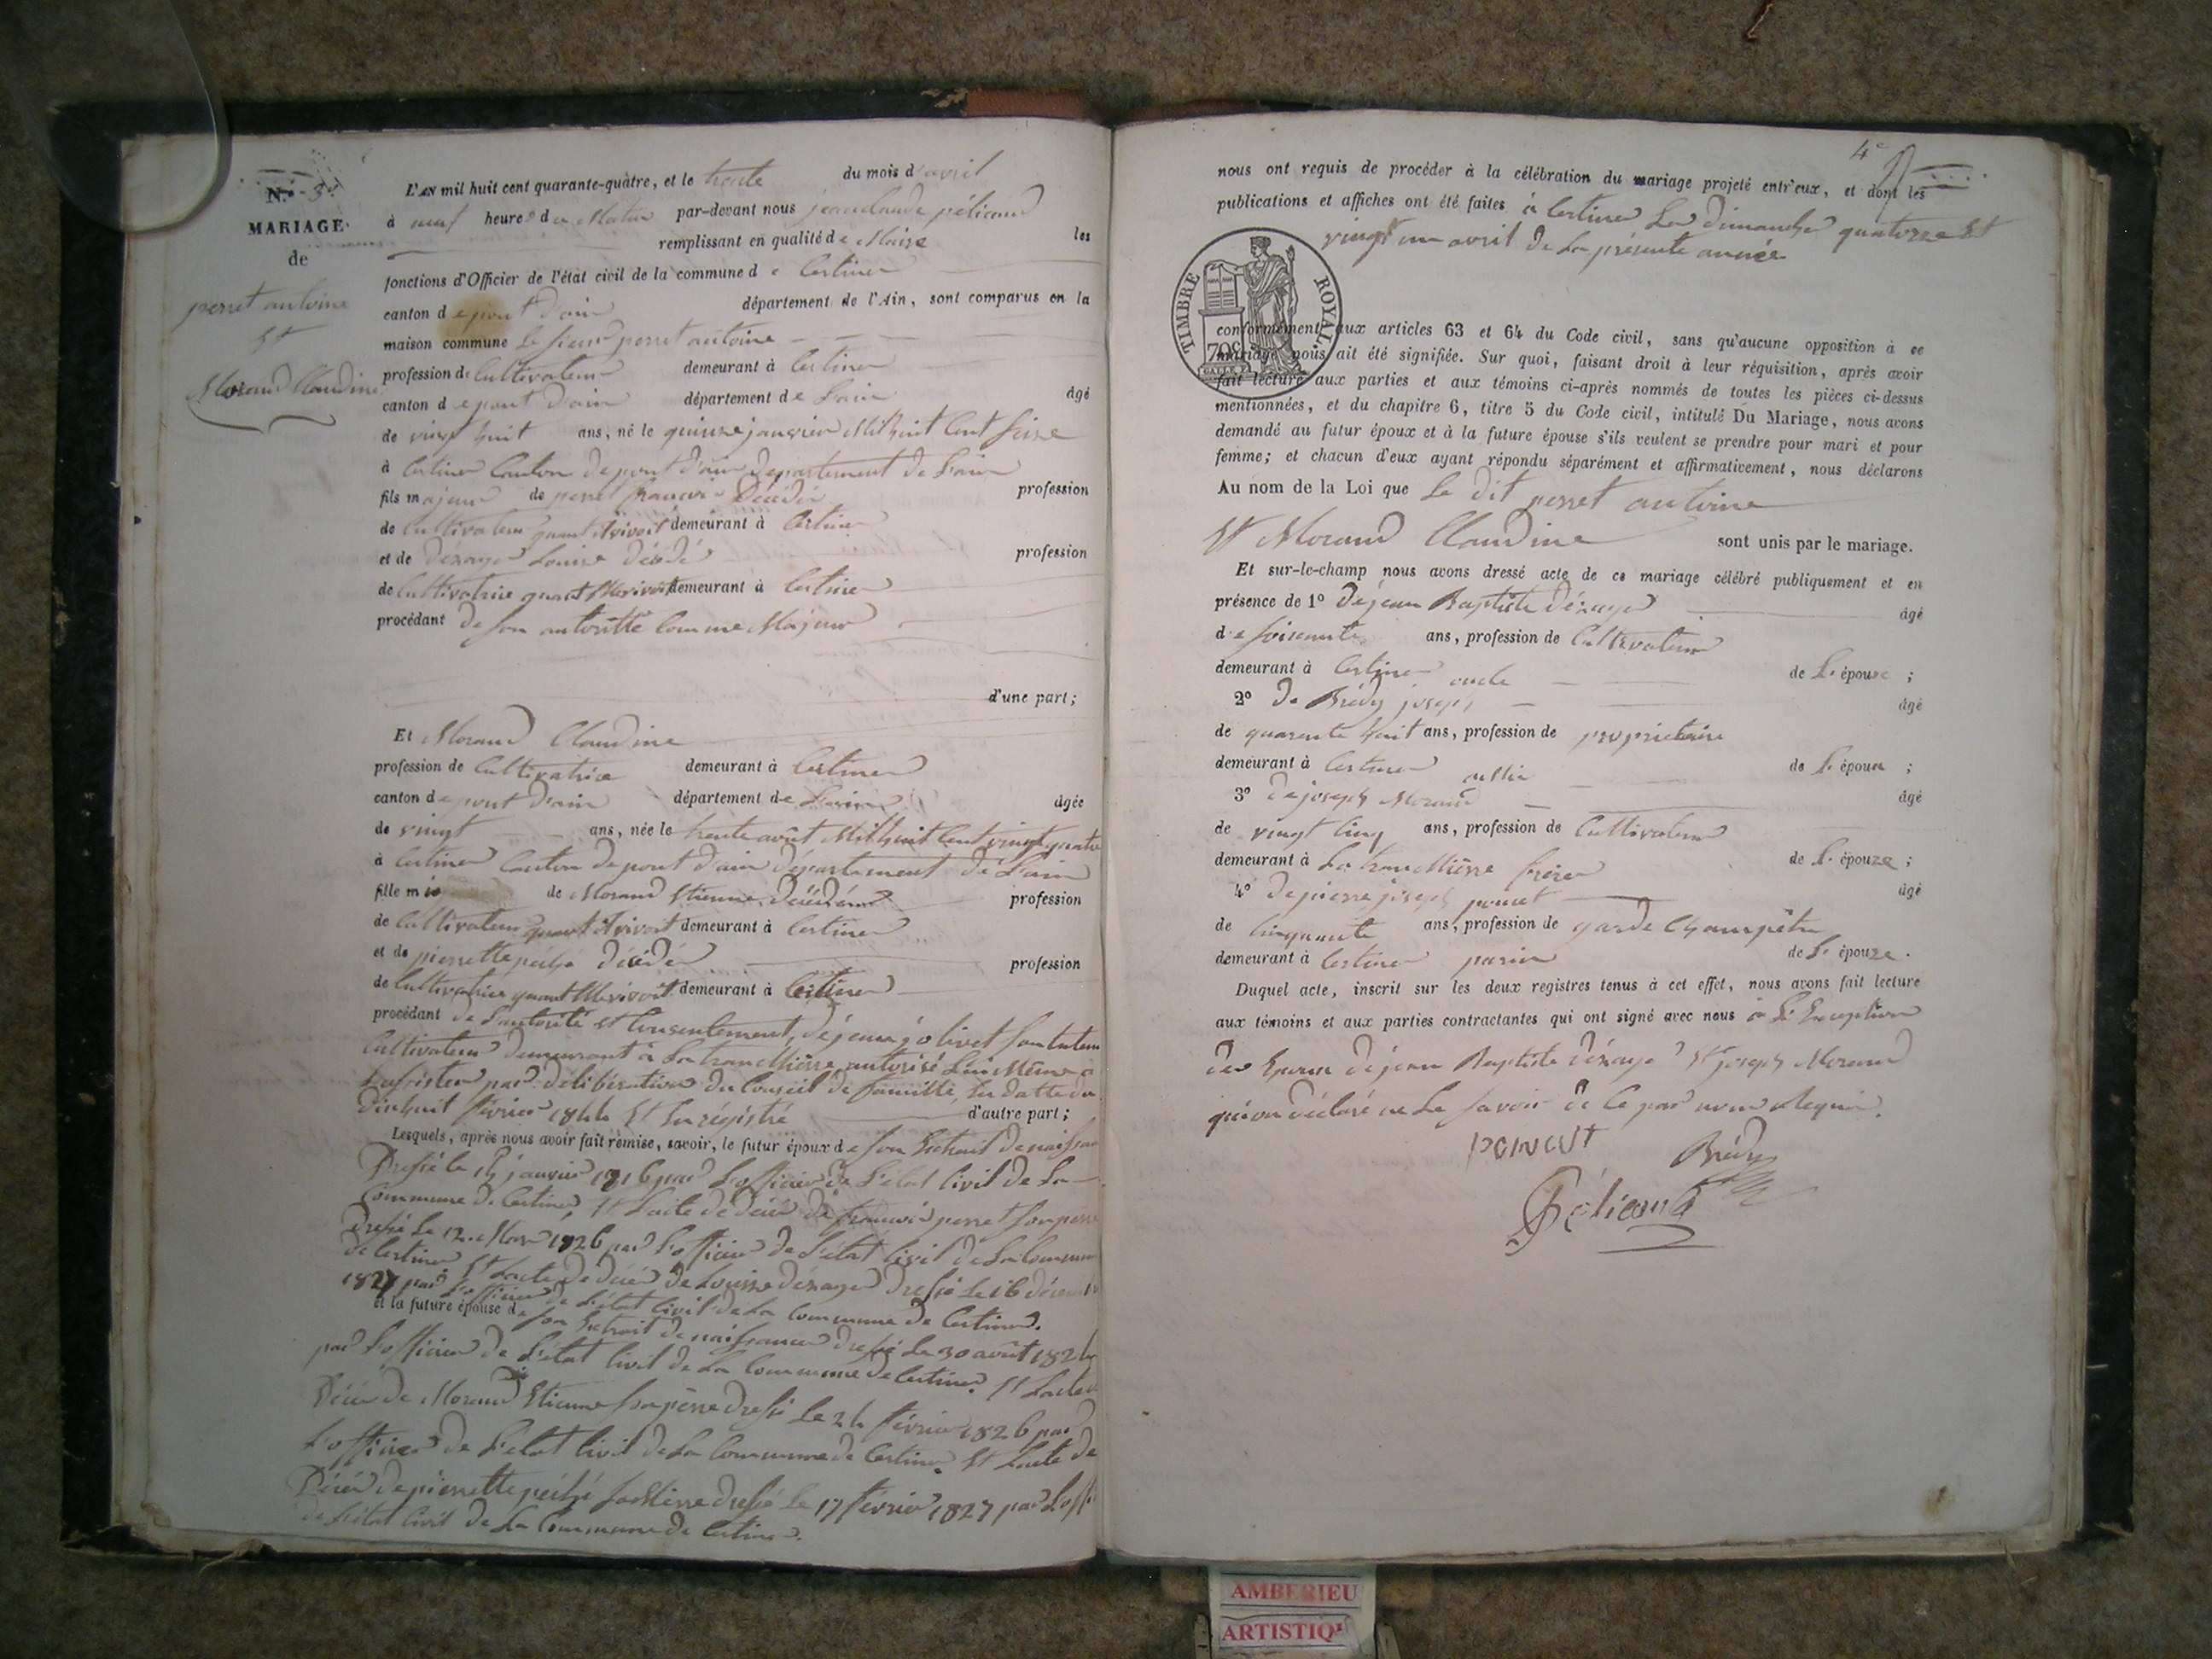 N.° 3.
MARIAGE
de
perret antoine
Et
Morand Claudine
L'AN mil huit cent quarante-quatre, et le trente du mois d'avril
à neuf heures du Matin par-devant nous jean claude péliand
remplissant en qualité de Maire les
fonctions d'Officier de l'état civil de la commune de Certines
canton de pont d'ain département de l'Ain, sont comparus en la
maison commune Le sieur perret antoine
profession de Cultivateur demeurant à Certines
canton de pont d'ain département de L'ain âgé
de vingt huit ans, né le quinze janvier Mil huit Cent seize
à Certines Canton de pont d'ain département de L'ain
fils majeur de perret françois Décédé profession
de Cultivateur quant il vivoit demeurant à Certines
et de Dézayes Louise décédé profession
de Cultivatrice quant Elle vivoit demeurant à Certines
procédant de son autorittè Comme Majeur
d'une part;
Et Morand Claudine
profession de Cultivatrice demeurant à Certines
canton de pont d'ain département de L'ain âgée
de vingt ans, née le trente août Mil huit Cent vingt quatre
à Certines Canton de pont d'ain département de L'ain
fille mi de Morand Etienne, décédé profession
de Cultivateur quant il vivoit demeurant à Certines
et de pierrette décédé profession
de Cultivatrice quant Elle vivoit demeurant à Certines
procédant de L'autorité et Consentement, de jean olivet son tuteur
Cultivateur demeurant à La tranclière autorisé Lui Même à
L'assister par délibération du Conseil de famille, En datte du
dix huit février 1844 Et Enrégistré d'autre part;
Lesquels, après nous avoir fait remise, savoir, le futur époux de son Extrait de naissance
Dressé le 15 janvier 1816 par L'officier de L'état Civil de La
Commune de Certines, Et L'acte de décès de françois perret son père
Dressé Le 12 Mars 1826 par L'officier de L'état Civil de La Commune
de Certines Et L'acte de décès de Louise dézayes Dressé Le 16 décembre
1827 par L'officier de L'état Civil de La Commune de Certines.
et la future épouse de son Extrait de naissance dressé Le 30 août 1824
par L'officier de L'état Civil de La Commune de Certines. Et L'acte de
Décès de Morand Etienne son père dressé Le 24 février 1826 par
L'officier de L'état Civil de La Commune de Certines. Et L'acte de
Décès de pierrette sa Mère dressé Le 17 février 1827 par L'offi
de L'état Civil de La Commune de Certines.
4e
nous ont requis de procéder à la célébration du mariage projeté entr'eux, et dont les
publications et affiches ont été faites à Certines Les dimanches quatorze Et
vingt un avril de La présente année
TIMBRE ROYAL
70c
conformément aux articles 63 et 64 du Code civil, sans qu'aucune opposition à ce
mariage nous ait été signifiée. Sur quoi, faisant droit à leur réquisition, après avoir
fait lecture aux parties et aux témoins ci-après nommés de toutes les pièces ci-dessus
mentionnées, et du chapitre 6, titre 5 du Code civil, intitulé Du Mariage, nous avons
demandé au futur époux et à la future épouse s'ils veulent se prendre pour mari et pour
femme; et chacun d'eux ayant répondu séparément et affirmativement, nous déclarons
Au nom de la Loi que Le dit perret antoine
Et Morand Claudine sont unis par le mariage.
Et sur-le-champ nous avons dressé acte de ce mariage célébré publiquement et en
présence de 1° de jean Baptiste dézayes âgé
de soisante ans, profession de Cultivateur
demeurant à Certines oncle de L'épouse ;
2° de Brédy joseph âgé
de quarente huit ans, profession de proprietaire
demeurant à Certines de L'épouse ;
3° de joseph Morand âgé
de vingt Cinq ans, profession de Cultivateur
demeurant à La tranclière frère de L'épouze ;
4° de pierre joseph poncet âgé
de Cinquante ans, profession de garde Champêtre
demeurant à Certines de L'épouze.
Duquel acte, inscrit sur les deux registres tenus à cet effet, nous avons fait lecture
aux témoins et aux parties contractantes qui ont signé avec nous à L'Exception
des Epoux de jean Baptiste dézayes Et joseph Morand
qui on déclaré ne Le savoir de Ce par nous Requis.
PONCET Brédy
Péliand
AMBERIEU
ARTISTIQ